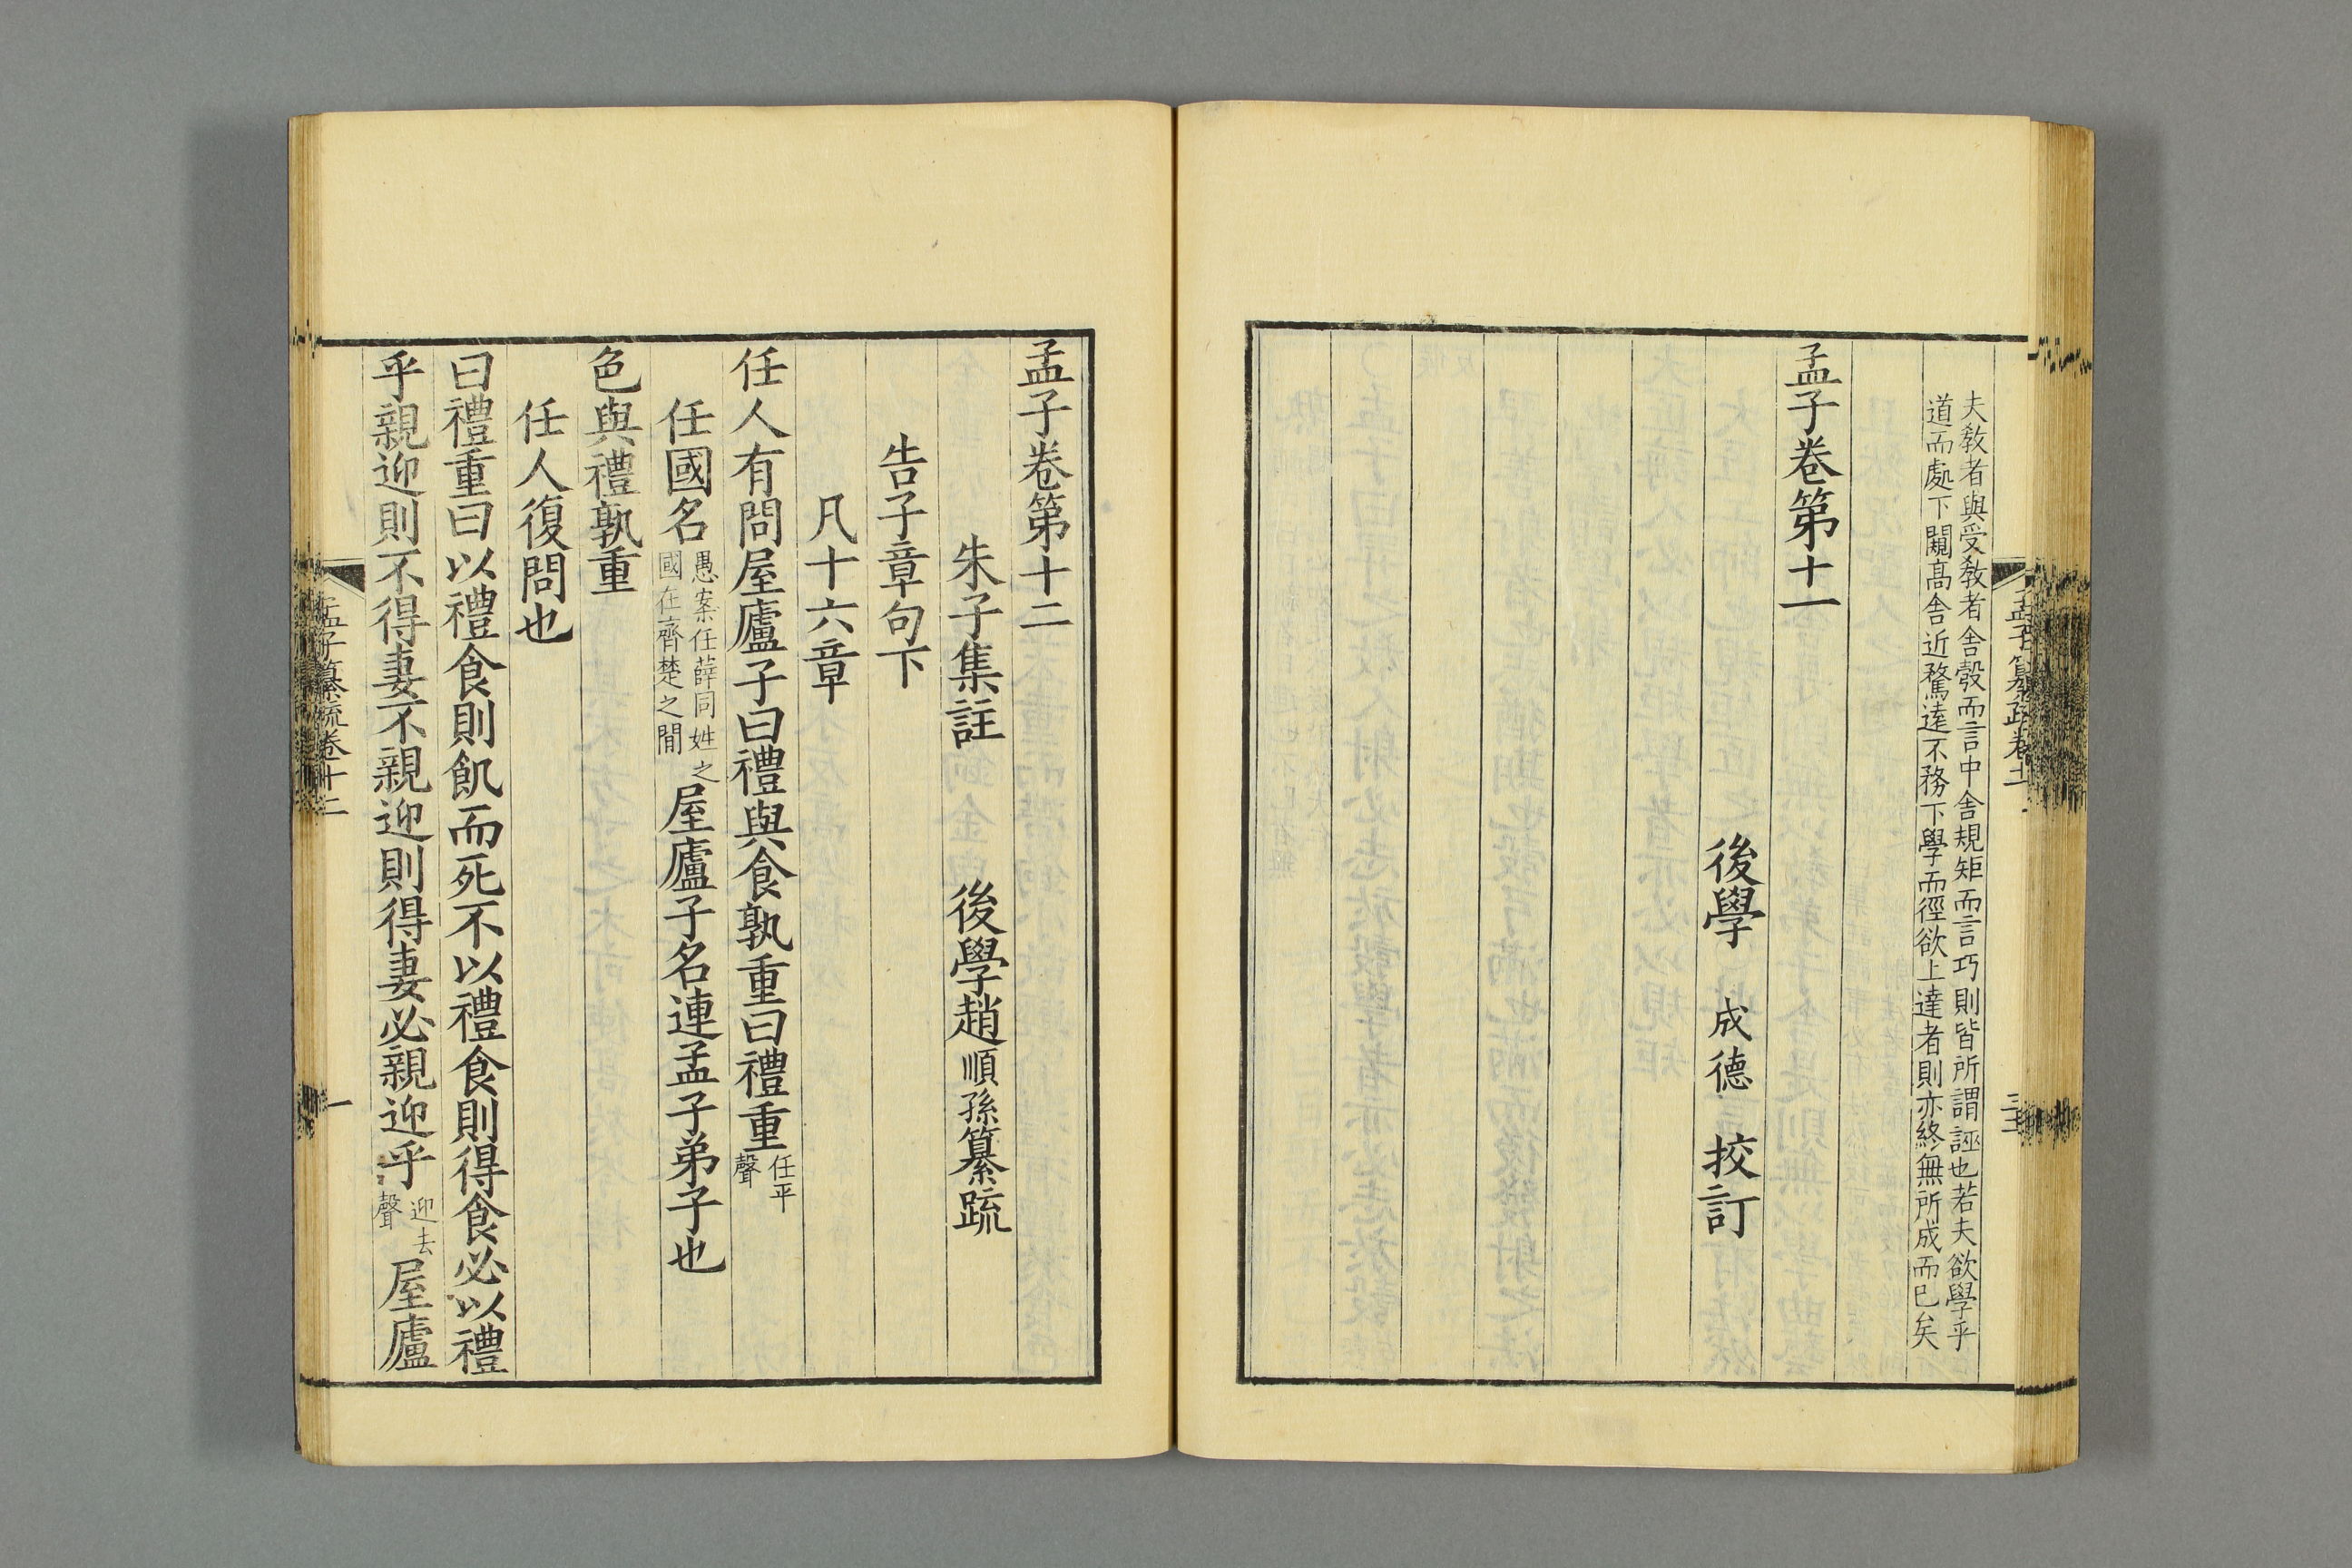 夫敎者與受敎者舍彀而言中舍規矩而言巧則皆所謂誣也若夫欲學乎
道而處下闚髙舍近騖逺不務下學而徑欲上達者則亦終無所成而已矣
孟子卷第十一
後學 成德 挍訂
孟子卷第十二
朱子集註 後學趙順孫纂疏
告子章句下
凡十六章
任人有問屋廬子曰禮與食孰重曰禮重任平聲
任國名愚案任薛同姓之國在齊楚之間屋廬子名連孟子弟子也
色與禮孰重
任人復問也
曰禮重曰以禮食則飢而死不以禮食則得食必以禮
乎親迎則不得妻不親迎則得妻必親迎乎迎去聲屋廬
孟子纂疏卷十二
一